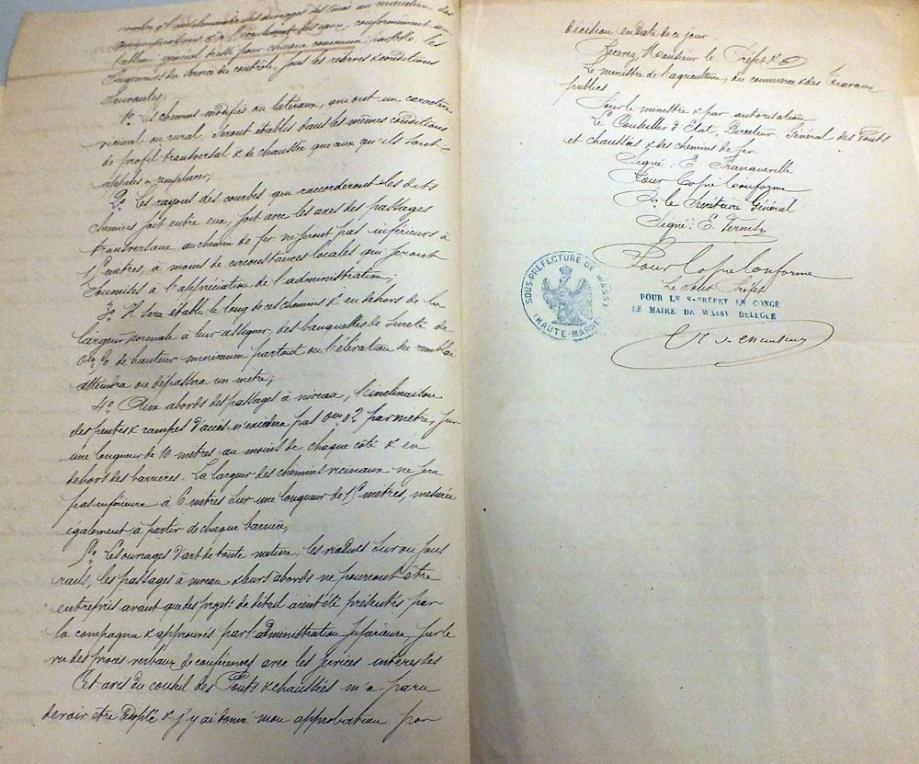 nombre & l'emplacement des ouvrages destinés au maintien des
communications & à l'écoulement des eaux, conformément au
tableau général dressé pour chaque commune par les
Ingénieurs du service du contrôle, sous les réserves & conditions
suivantes:
1º Les chemins modifiés ou latéraux, qui ont un caractère
vicinal ou rural seront établis dans les mêmes conditions
de profil transversal & de chaussée que ceux qu'ils sont
appelés à remplacer;
2º Les rayons des courbes qui raccorderont les dits
chemins soit entre eux, soit avec les axes des passages
transversaux au chemin de fer ne seront pas inférieurs à
15 mètres, à moins de circonstances locales qui seront
soumises à l'appréciation de l'administration;
3º Il sera établi le long de ces chemins & en dehors de la
largeur normale à leur assigner, des banquettes de sûreté de
de hauteur minimum partout où l'élévation du remblai
atteindra ou dépassera un mètre;
4º Aux abords des passages à niveau, l'inclinaison
des pentes & rampes d'accès n'excèdera pas 0m 02 par mètre, sur
une longueur de 10 mètres au moins de chaque côté & en
dehors des barrières. La largeur des chemins vicinaux ne sera
pas inférieure à 6 mètres sur une longueur de 15 mètres, mesurée
également à partir de chaque barrière,
5º Les ouvrages d'art de toute nature, les viaducs sur ou sous
rails, les passages à niveau & leurs abords ne pourront être
entrepris avant que des projets de détail aient été présentés par
la compagnie & approuvés par l'administration supérieure, sur le
vu des procès verbaux de conférences avec les services intéressés
Cet avis du conseil des Ponts & chaussées m'a paru
devoir être adopté & j'y ai donné mon approbation par
décision en date de ce jour.
Recevez, Monsieur le Préfet &a
Le ministre de l'agriculture, du commerce & des Travaux
publics
Pour le ministre & par autorisation
Le Conseiller d'Etat, Directeur Général des Ponts
et chaussées & des chemins de fer
Signé: E. Franqueville
Pour Copie Conforme
Pr. le Secrétaire Général
Signé: E.
Pour Copie Conforme
Le Sous Préfet
SOUS-PRÉFECTURE DE WASSY
(HAUTE-MARNE)
POUR LE S-PRÉFET EN CONGÉ
LE MAIRE DE WASSY DÉLÉGUÉ